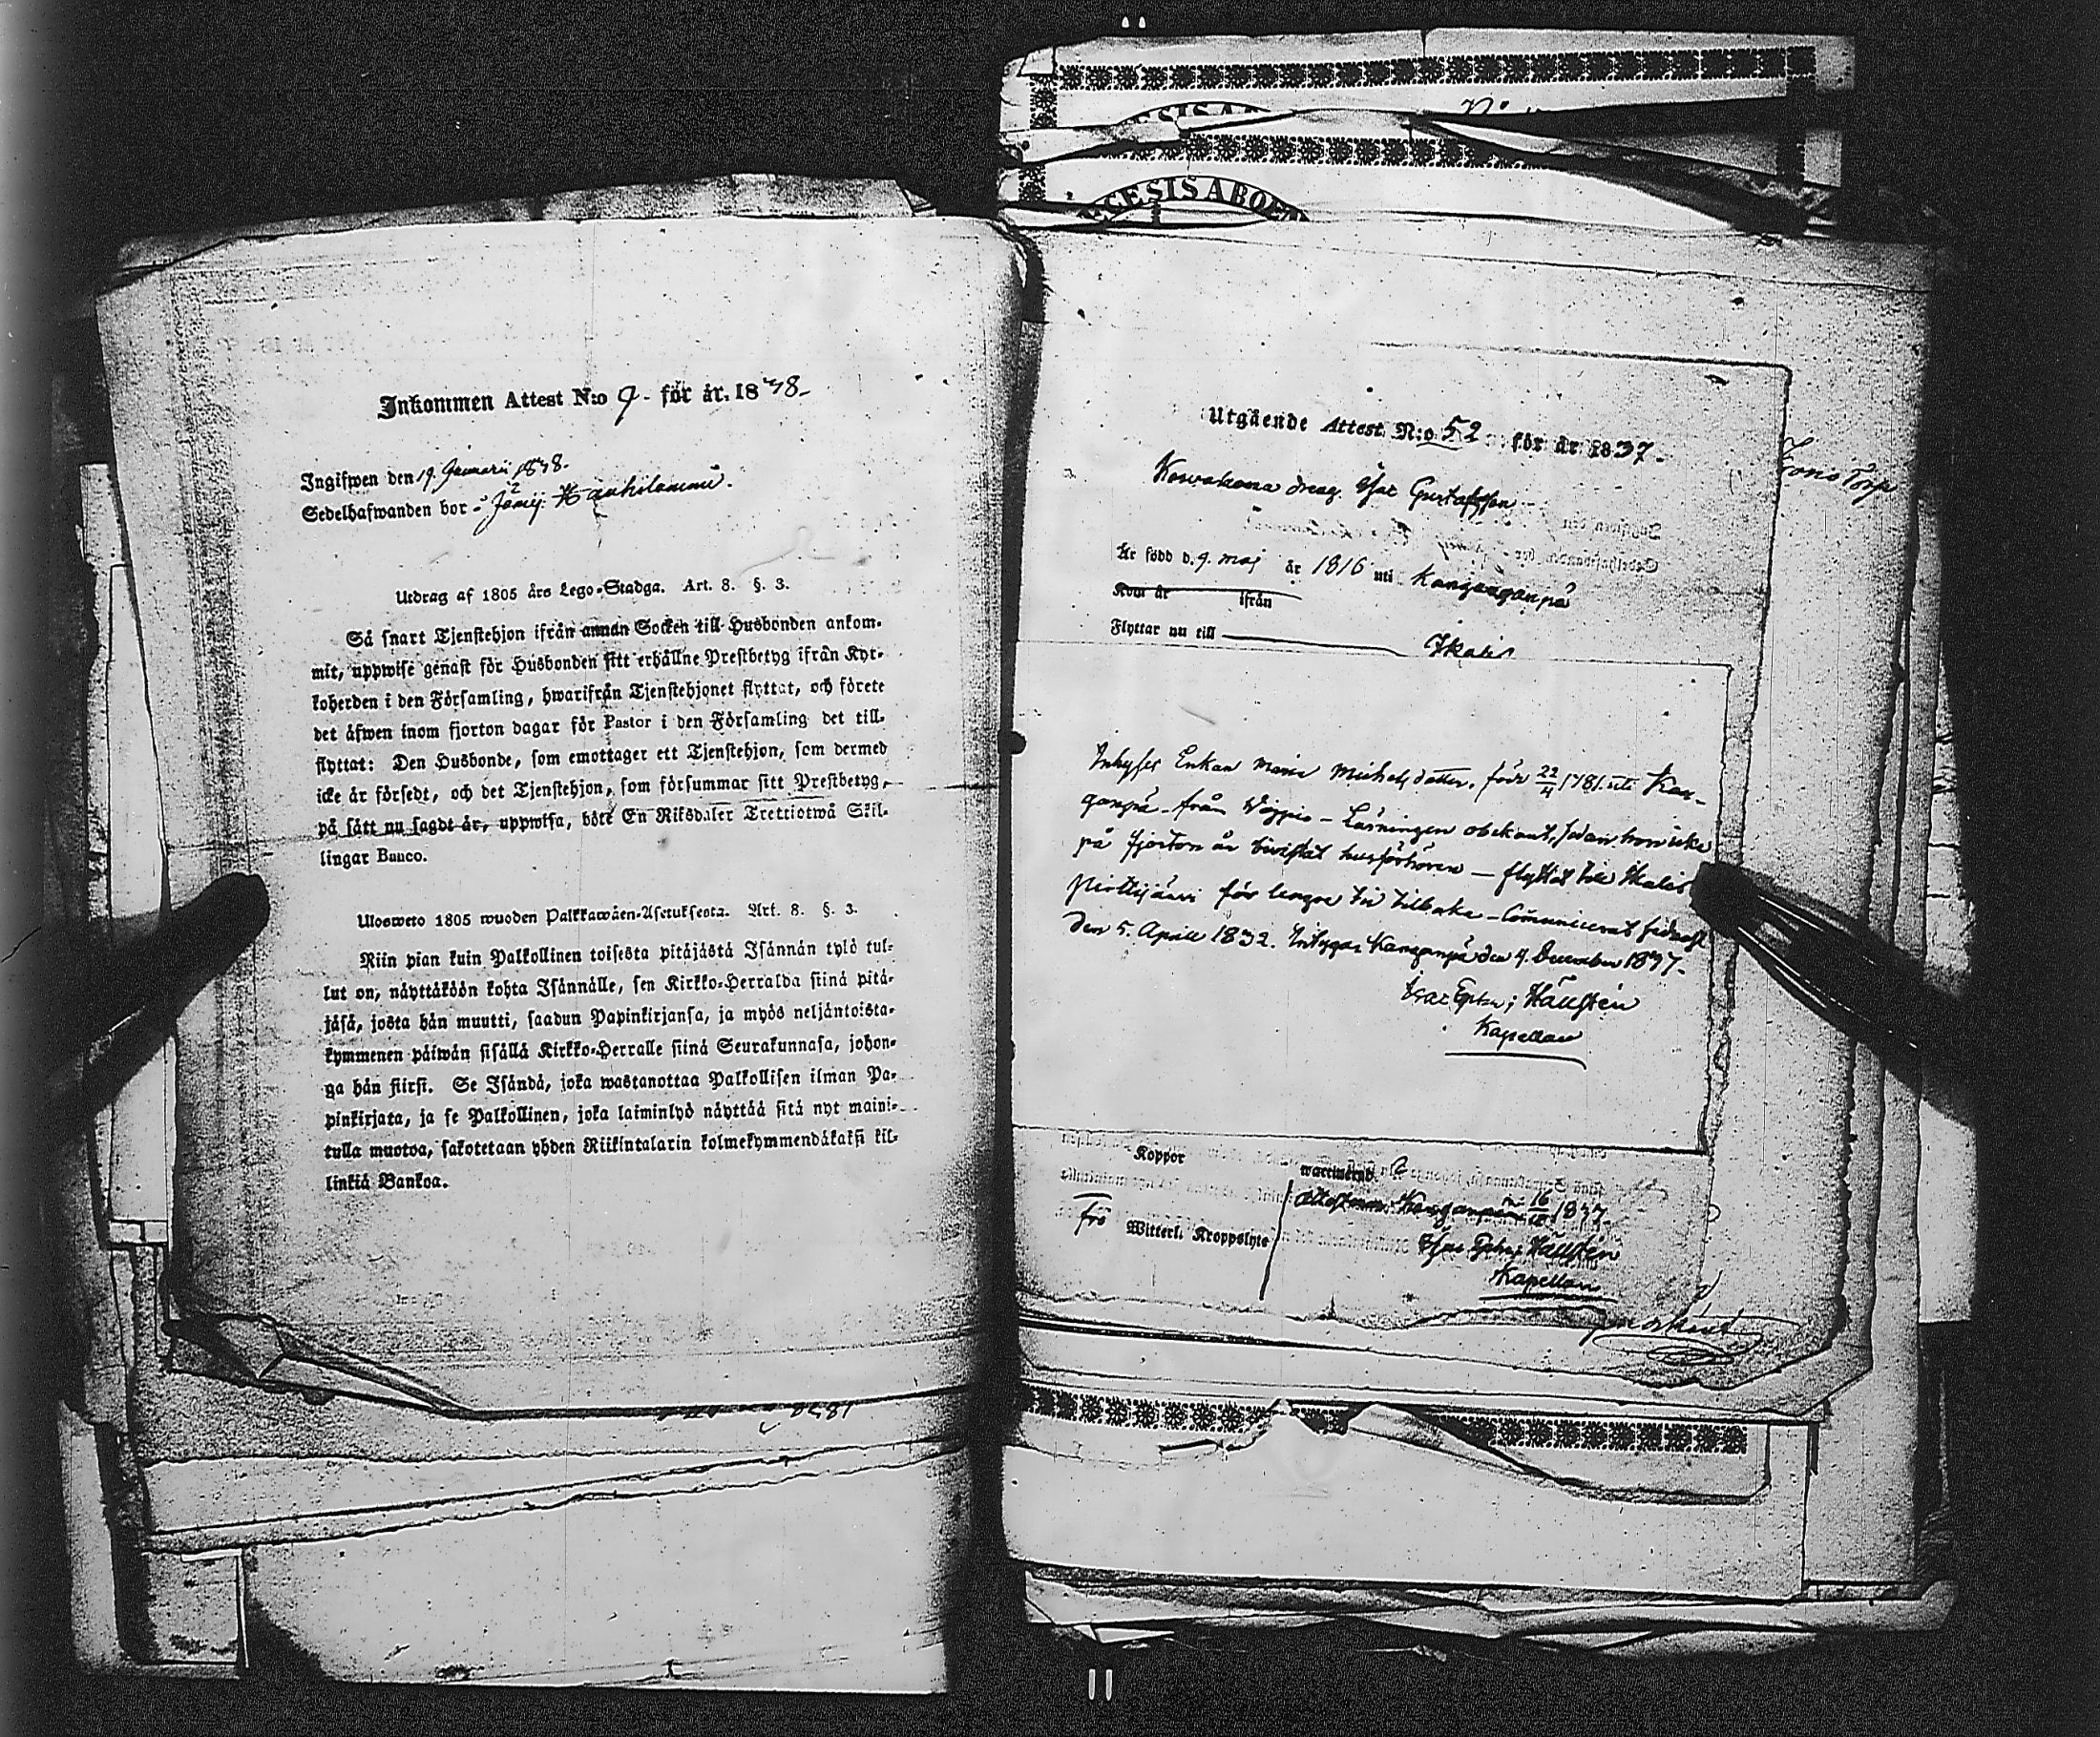 Inkommen Attest N:o 9 - för år. 1838-
Ingifwen den 19. Januarii 1838.
Sedelhafwanden bor - Jämij: Hauhilammi.
Utdrag af 1805 års Lego-Stadga. Art. 8. §. 3.
Så snart Tjenstehjon ifrån annan Socken till Husbonden ankom-
mit, uppwise genast för Husbonden sitt erhållne Prestbetyg ifrån Kyr-
koherden i den Församling, hwarifrån Tjenstehjonet flyttat, och förete
det äfwen inom fjorton dagar för Pastor i den Församling det till-
flyttat: Den Husbonde, som emottager ett Tjenstehjon, som dermed
icke är försedt, och det Tjenstehjon, som försummar sitt Prestbetyg,
på sätt nu sagdt är, uppwisa, böte En Riksdaler Trettiotwå Skil-
lingar Banco.
Ulosweto 1805 wuoden Palkkawäen-Asetuksesta. Art. 8. §. 3.
Niin pian kuin Palkollinen toisesta pitäjästä Isännän tylö tul-
lut on, näyttäköön kohta Isännälle, sen Kirkko-Herralda siinä pitä-
jäsä, josta hän muutti, saadun Papinkirjansa, ja myös neljäntoista-
kymmenen päiwän sisällä Kirkko-Herralle siinä Seurakunnasa, johon-
ga hän siirsi. Se Isändä, joka wastanottaa Palkollisen ilman Pa-
pinkirjata, ja se Palkollinen, joka laiminlyö näyttää sitä nyt maini-
tulla muotoa, sakotetaan yhden Riikintalarin kolmekymmendäkaksi kil-
linkiä Bankoa.
ECESIS ABOEN
Utgående Attest N:o 52 för år 1837.
drag. Isac Gustafsson
Är född d. 9. maj år 1816 uti Kangangånpå
Kom år ifrån
Flyttar nu till Ikalis
Inhyses Enkan Maria Michelsdotter, född 22/4 1781. uti Kan-
gånpå - från - Läsningen obekant, sedan hon icke
på fjorton år bivistat husförhören - flyttat till Ikalis
för längre tid tilbaka - Communicerat sednast
den 5. April 1832. Intygar Kangånpå den 4. December 1837.
Isac Hällsten
Kapellan
Koppor
Witterl. Kroppslyte
Kangånpå 16/10 1837.
Isac Hällsten
Kapellan